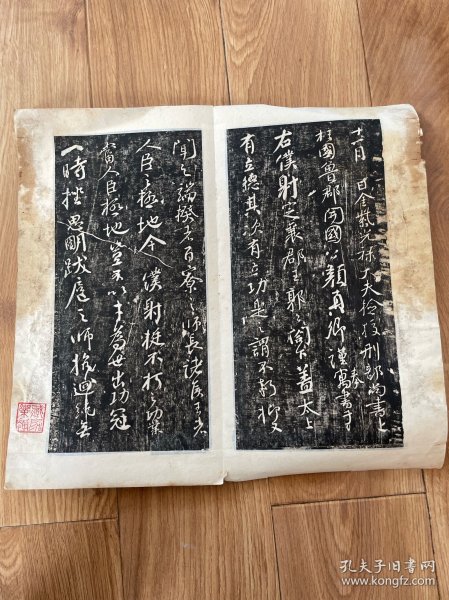 十一月 日金紫光祿大夫檢校刑部尚書上
柱國魯郡開國公顏真卿謹奉寓書于
右僕射定襄郡王郭公閤下蓋太上
有立德其次有立功是之謂不朽抑又
聞之端揆者百寮之師長諸侯王者
人臣之極地今僕射挺不朽之功業
當人臣極地豈不以才為世出功冠
一時挫思明跋扈之師抗迴紇無
孔夫子旧书网
www.kongfz.com